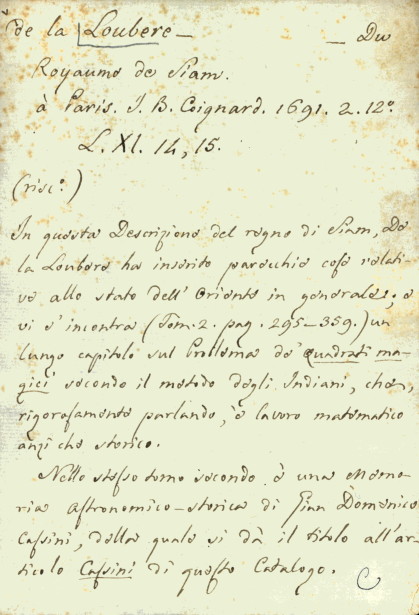 de la Loubere — — Du
Royaume de Siam.
à Paris. J. B. Coignard. 1691. 2. 12°.
L. XI. 14, 15.
(risc°.)
In questa Descrizione del regno di Siam, De
la Loubere ha inserito parecchie cose relati-
ve allo stato dell' Oriente in generale; e
vi s' incontra (Tom. 2. pag. 295–359.) un
lungo capitolo sul Problema de' quadrati ma-
gici secondo il metodo degli Indiani, che,
rigorosamente parlando, è lavoro matematico
anzi che storico.
Nello stesso tomo secondo è una Memo-
ria astronomico-storica di Gian Domenico
Cassini, della quale si dà il titolo all'ar-
ticolo Cassini di questo Catalogo.